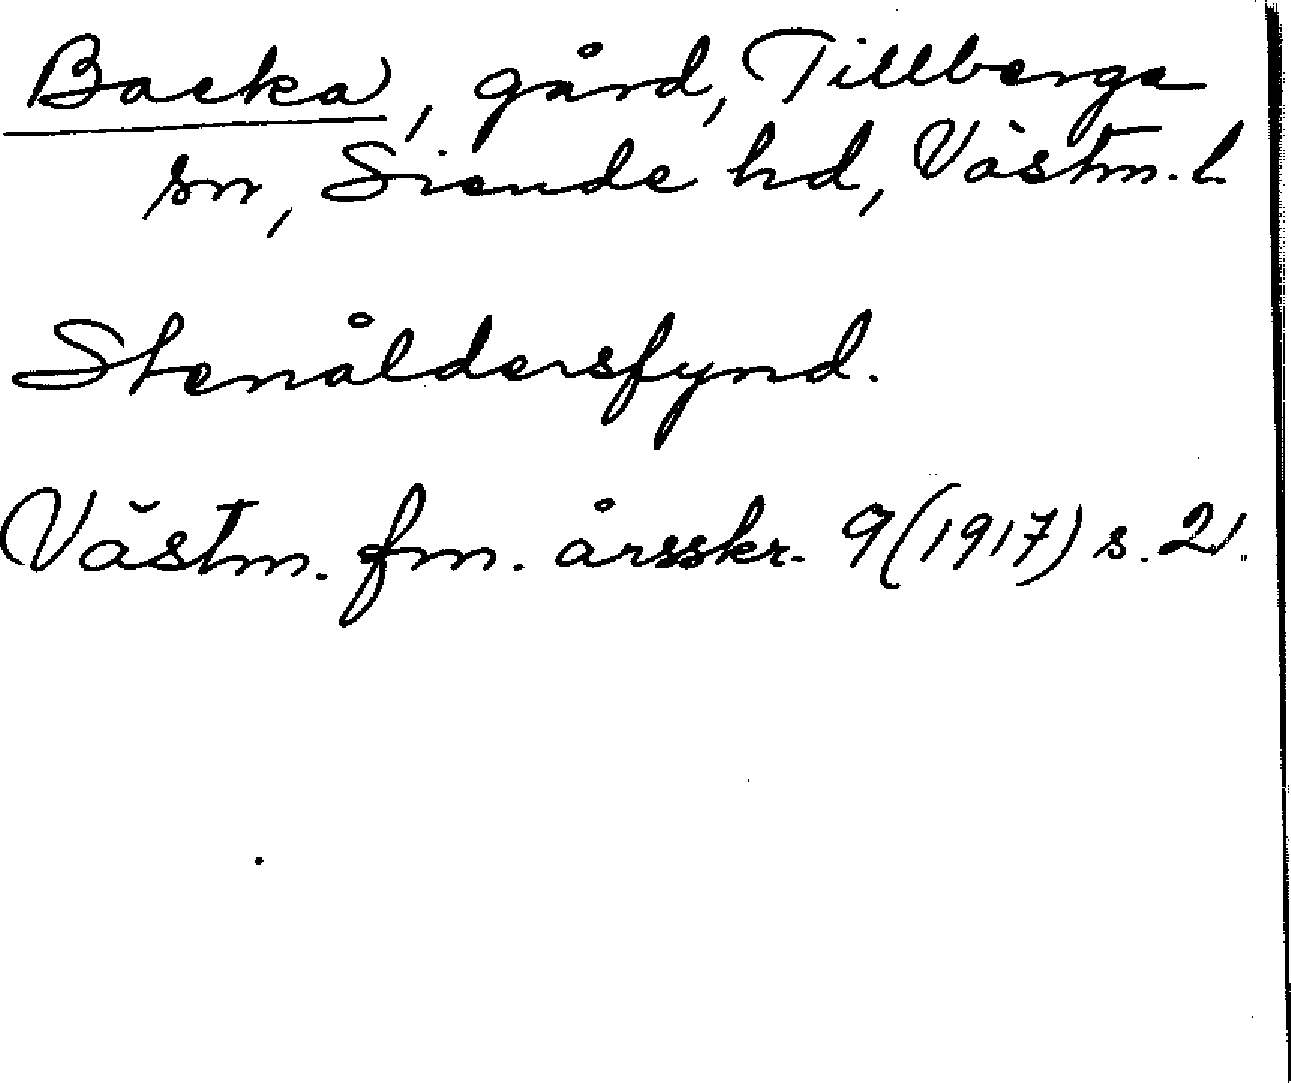 Backa, gård, Tillberga
sn, Siende hd, Västm. l.
Stenåldersfynd.
Västm. fm. årsskr. 9 (1917) s. 21.